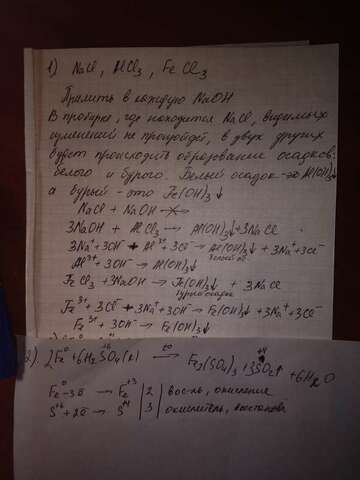 1) NaCl, AlCl3, FeCl3
Прилить в каждую NaOH
В пробирке, где находится NaCl, видимых
изменений не произойдет, в двух других
будет происходить образовании осадков:
белого и бурого. Белый осадок - это Al(OH)3↓
а бурый - это Fe(OH)3↓
NaCl + NaOH ↛
3NaOH + AlCl3 → Al(OH)3↓ + 3NaCl
3Na⁺ + 3OH⁻ + Al³⁺ + 3Cl⁻ → Al(OH)3↓ + 3Na⁺ + 3Cl⁻
Al³⁺ + 3OH⁻ → Al(OH)3↓
FeCl3 + 3NaOH → Fe(OH)3↓ + 3NaCl
бурый осадок
Fe³⁺ + 3Cl⁻ + 3Na⁺ + 3OH⁻ → Fe(OH)3↓ + 3Na⁺ + 3Cl⁻
Fe³⁺ + 3OH⁻ → Fe(OH)3↓
2) 2Fe⁰ + 6H2S⁺⁶O4(к) →t⁰ Fe2(SO4)3 + 3S⁺⁴O2↑ + 6H2O
Fe⁰ - 3ē → Fe⁺³ | 2 | вос-ль, окисления
S⁺⁶ + 2ē → S⁺⁴ | 3 | окислитель,